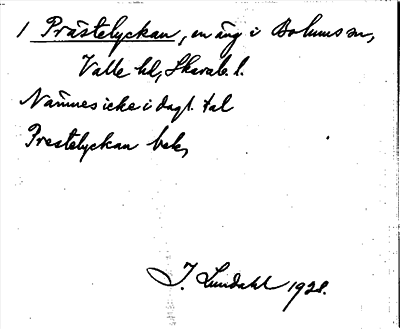 1 Prästelyckan, en äng i Bolums sn,
Valle hd, Skarab. l.
Nämnes icke i dagl. tal
Prestelyckan bek,
I. Lundahl 1928.